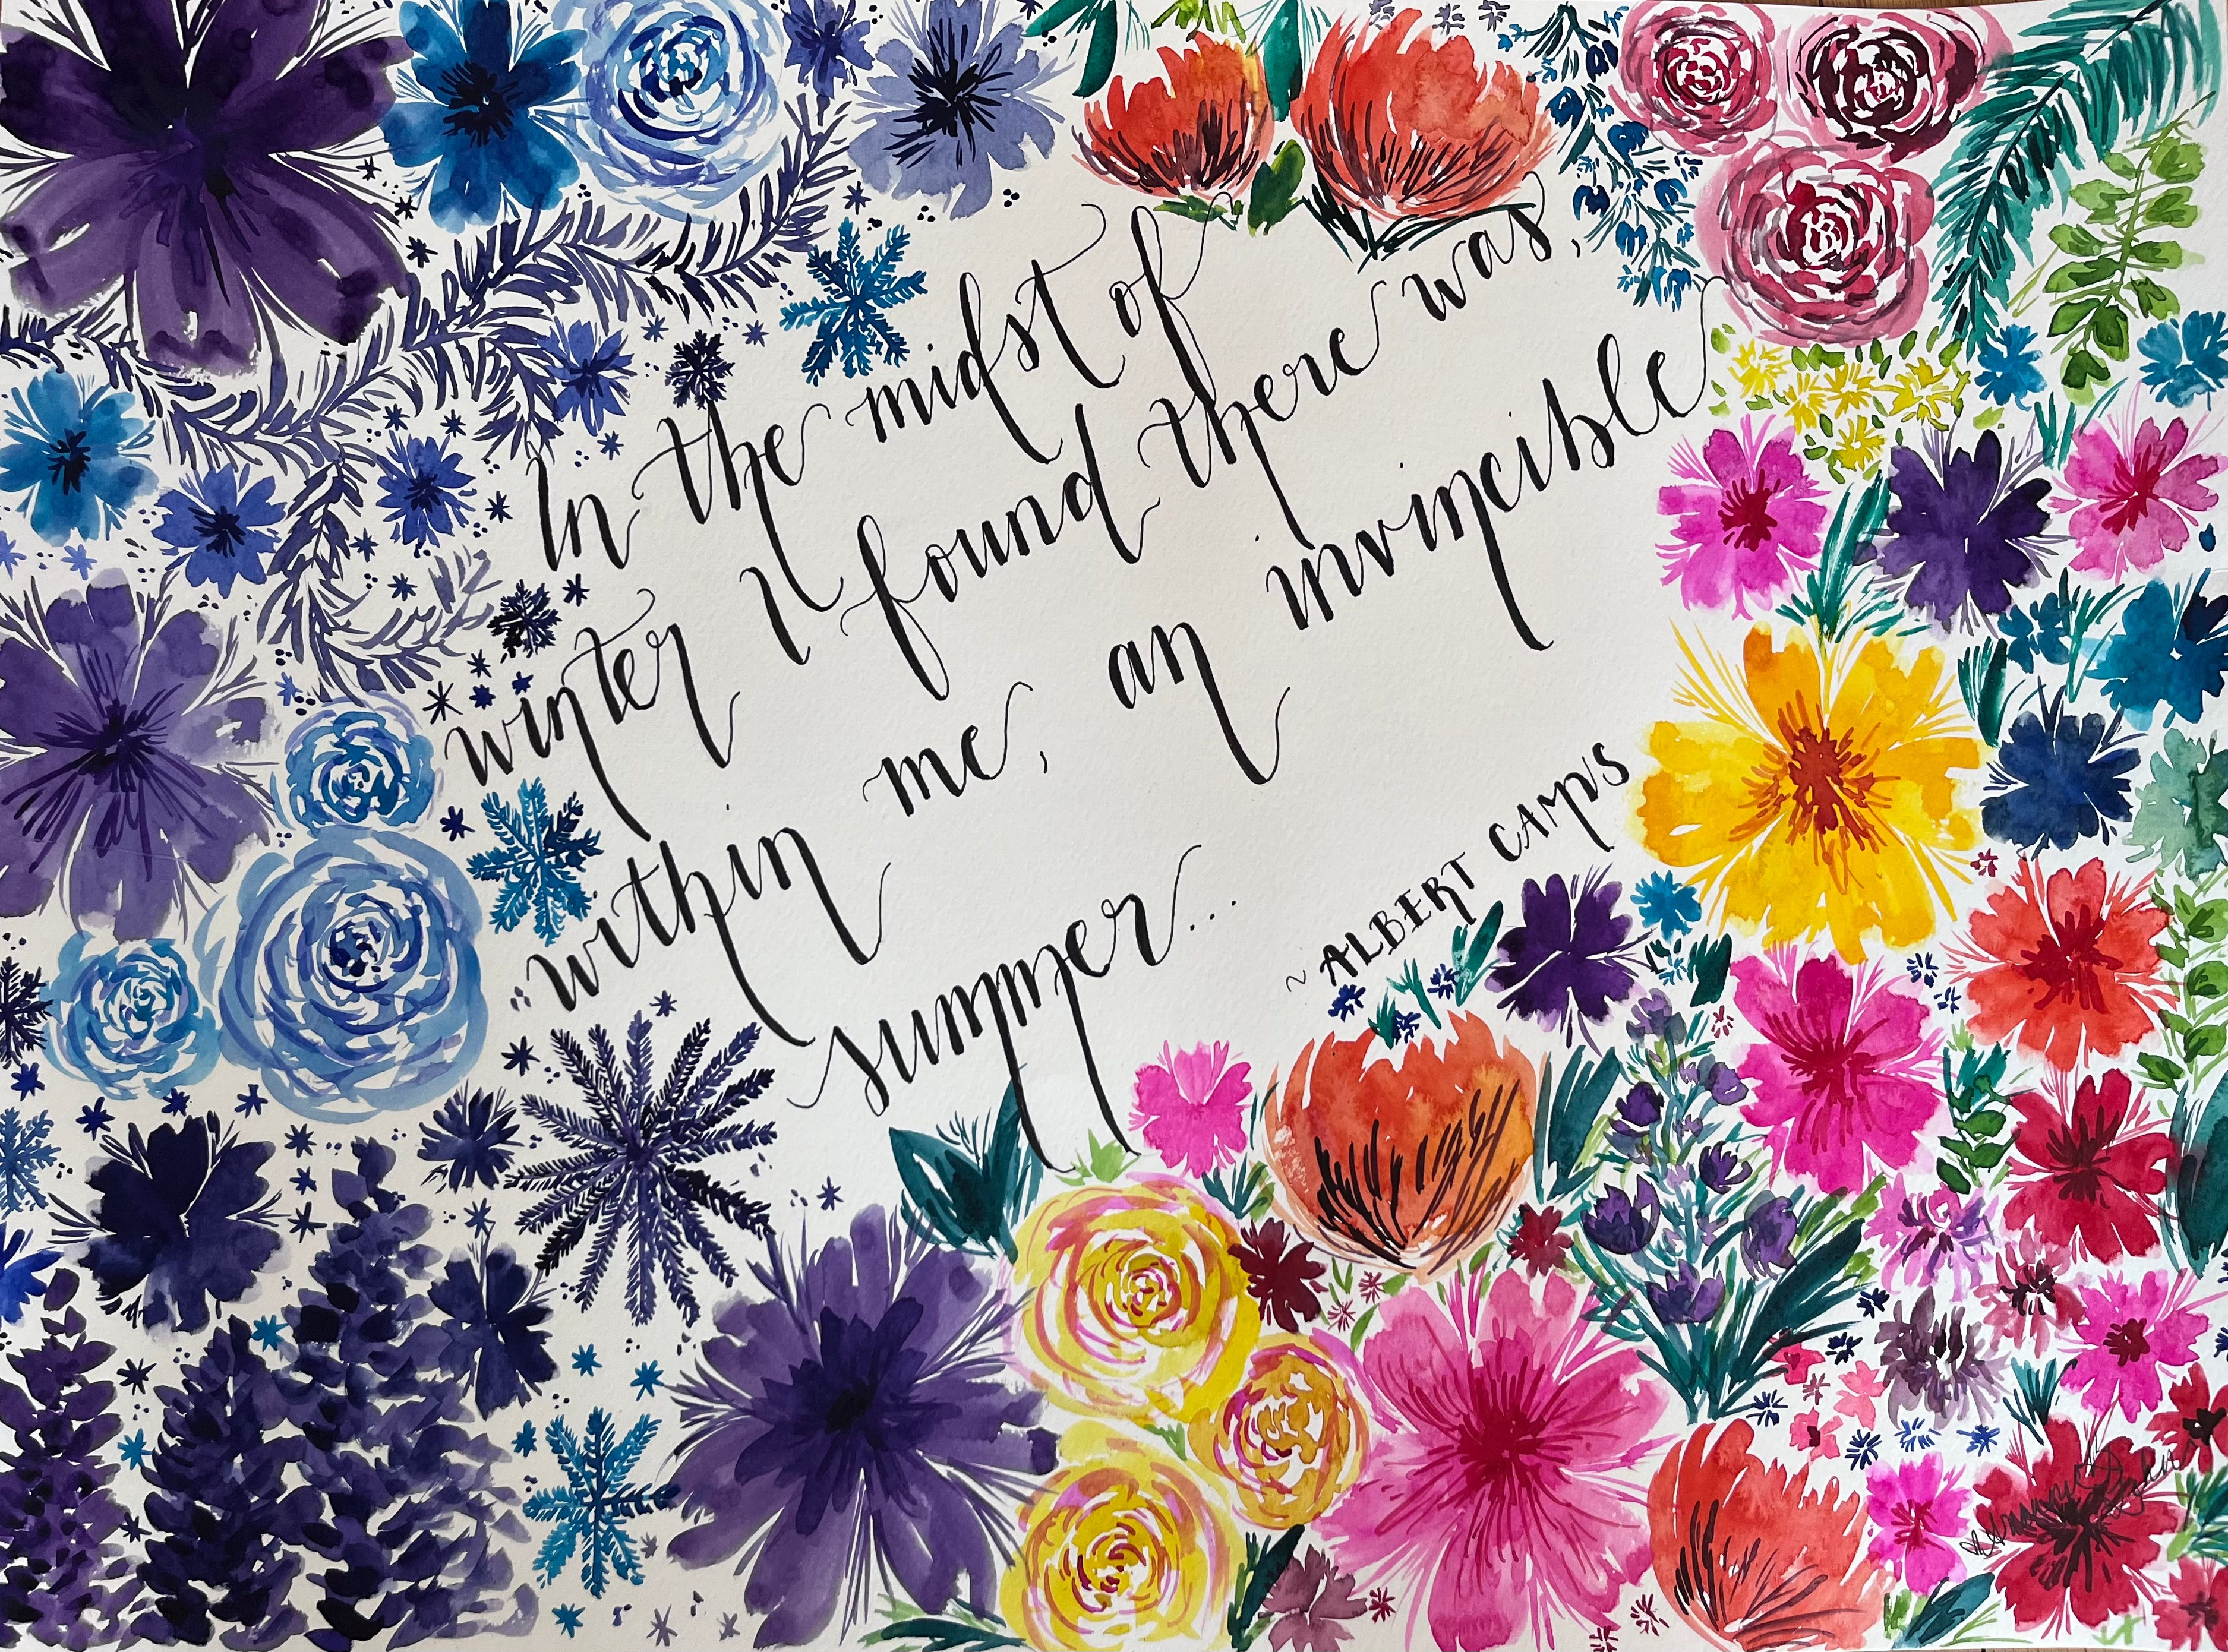 In the midst of
winter I found there was,
within me, an invincible
summer...
~ ALBERT CAMUS